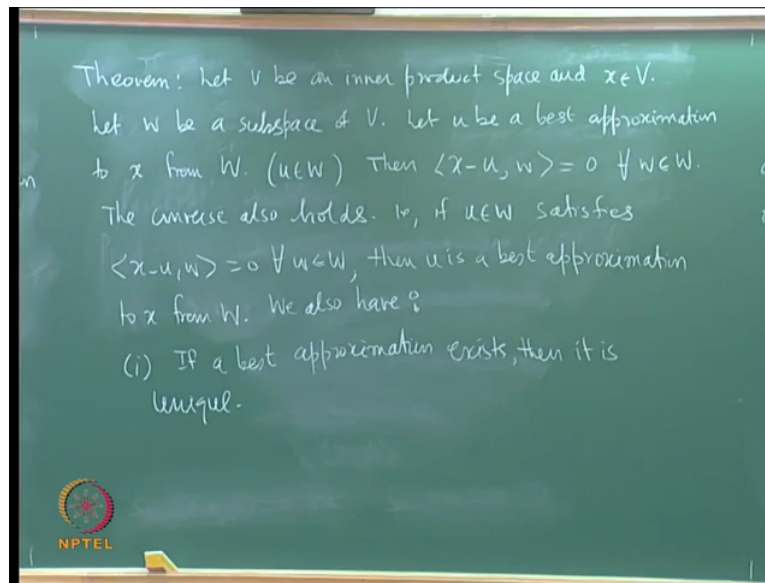 Theorem: Let V be an inner product space and x ∈ V.
Let W be a subspace of V. Let u be a best approximation
to x from W. (u ∈ W) Then ⟨x-u, w⟩ = 0 ∀ w ∈ W.
The converse also holds. ie, if u ∈ W satisfies
⟨x-u, w⟩ = 0 ∀ w ∈ W, then u is a best approximation
to x from W. We also have :
(i) If a best approximation exists, then it is
unique.
n
NPTEL